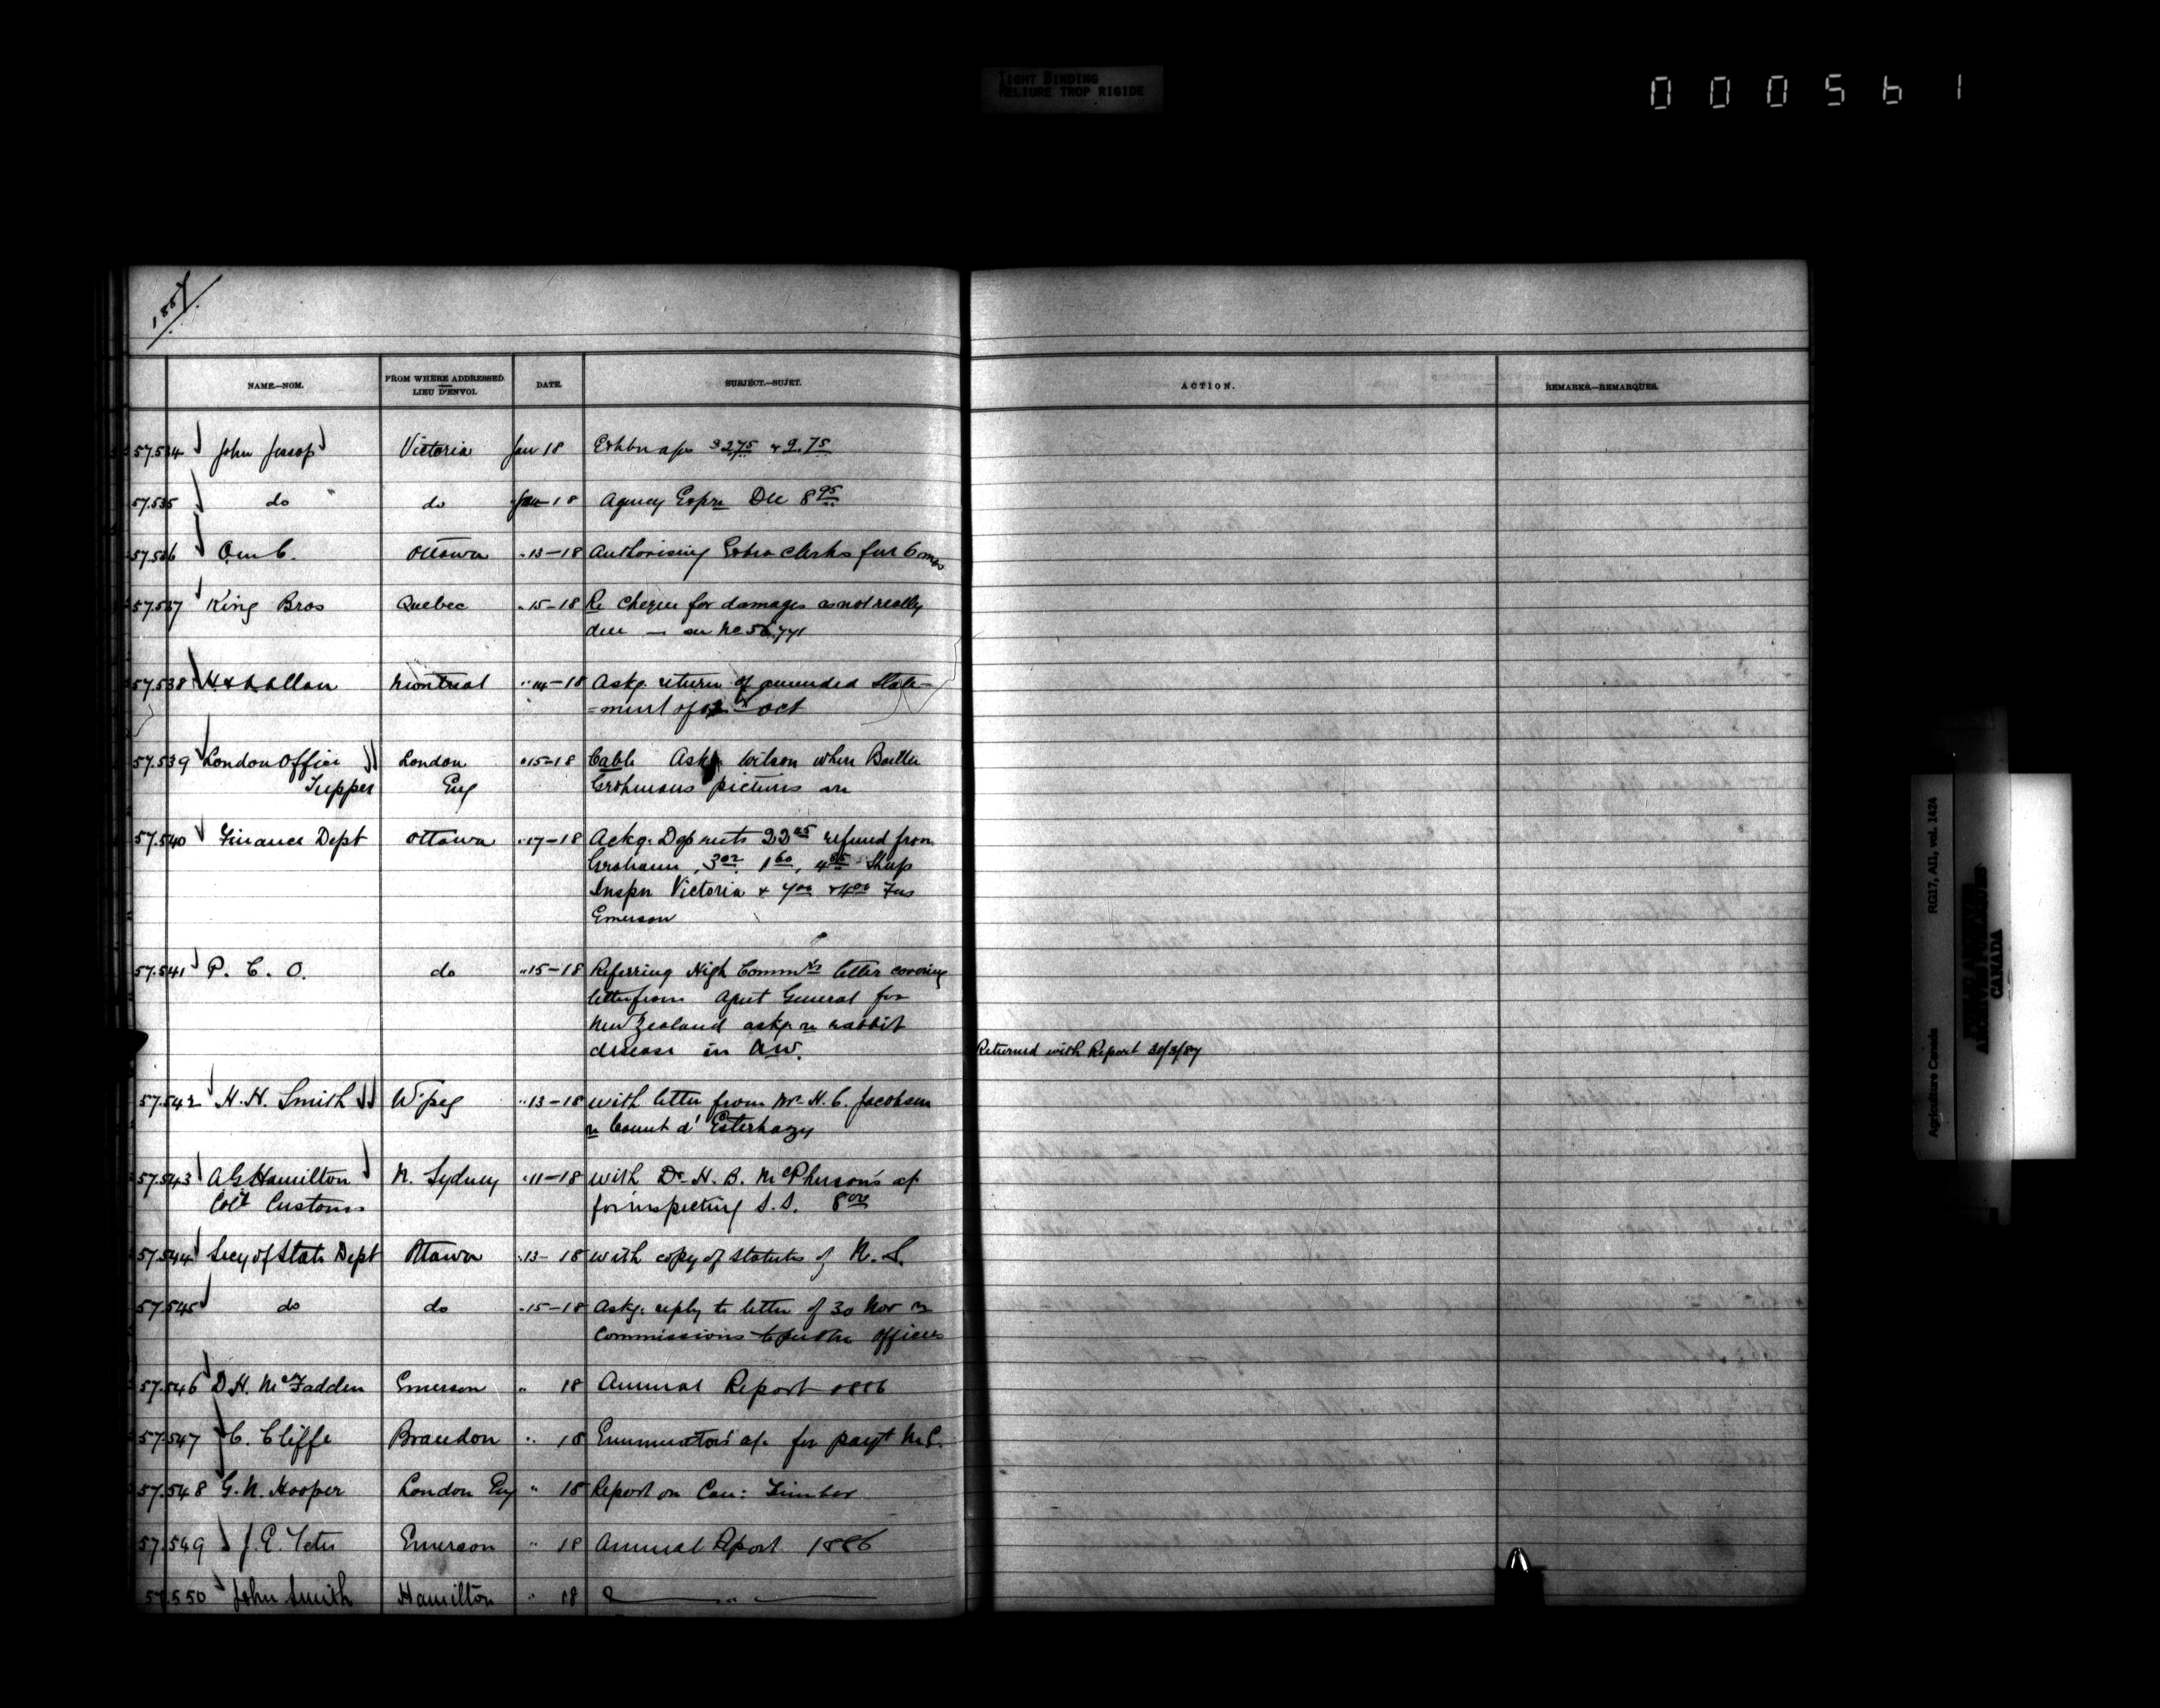 TIGHT BINDING
RELIURE TROP RIGIDE
000561
1887
NAME.—NOM. FROM WHERE ADDRESSED LIEU D'ENVOI. DATE. SUBJECT.—SUJET. ACTION. REMARKS.—REMARQUES.
57.534 John Jessop Victoria Jan 18 275 & 9.75
57.535 do do Jan 18 Agency Expn Dec 8 95
57.536 O in C. Ottawa " 13-18 Authorising Extra clerks for 6 mos
57.537 King Bros Quebec " 15-18 Re Cheque for damages as not really
due — on No 56.771
57.538 H & A Allan Montreal " 14-18 Askg. return of amended State-
=ment of Oct
57.539 London Office London " 15-18 Cable Askg Wilson where Baillie
Tupper Eng Grohmans pictures are
57.540 Finance Dept Ottawa " 17-18 Ackg. Deposits refund from
Grahame, 3 02, 1 60, 4 85 Sheep
Inspn Victoria & 7 00 & 4 00 Fees
Emerson
57.541 P. C. O. do " 15-18 Referring High Commrs letter covering
letter from Agent General for
New Zealand askg. re rabbit
disease in N.W.
Returned with Report 30/3/87
57.542 H. H. Smith W'peg " 13-18 with letter from Mr H. C. Jacobsen
re Count d'Esterhazy
57.543 A G Hamilton N. Sydney " 11-18 with Dr H. B. McPherson's a/c
Colr Customs for inspecting S.S. 8 00
57.544 Secy of State Dept Ottawa " 13-18 with copy of Statutes of N.S.
57.545 do do " 15-18 Askg. reply to letter of 30 Nov re
Commissions to officers
57.546 D. H. McFadden Emerson " 18 Annual Report 1886
57.547 C. Cliffe Brandon " 18 Enumerators a/c for payt
57.548 G. N. Hooper London Eng " 18 Report on Can: Timber
57.549 J. E. Tetu Emerson " 18 Annual Report 1886
57.550 John Smith Hamilton " 18 "
Agriculture Canada RG17, AI1, vol. 1424
CANADA